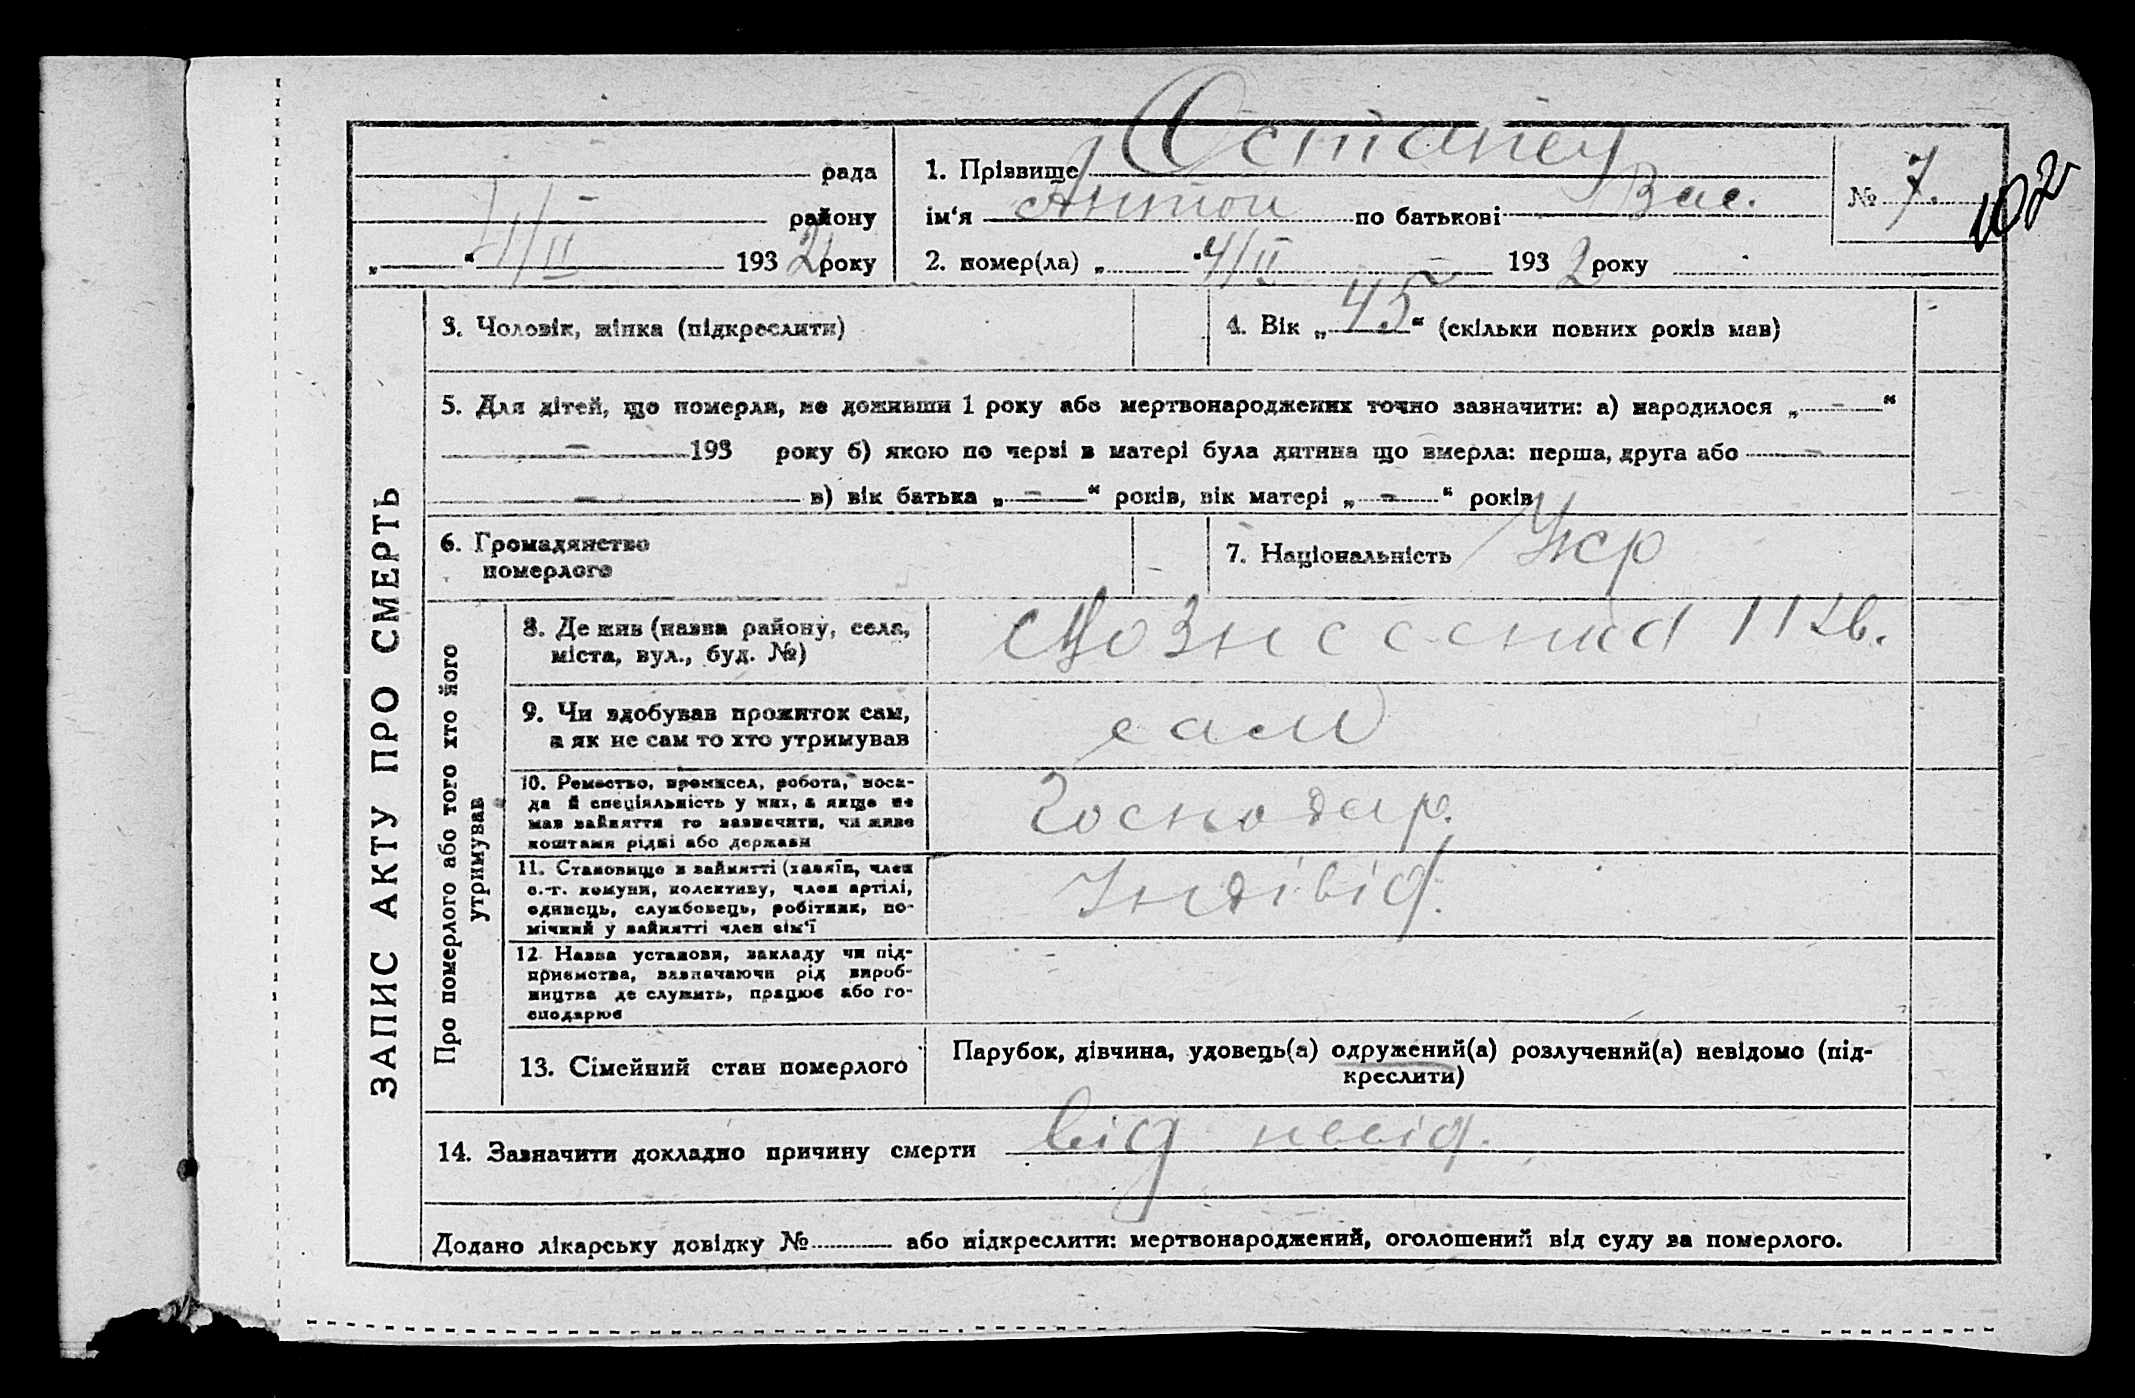 Остапец
рада
району
„ “ 4/II 1932 року
1. Прізвище
ім‘я Антон по батькові Вас.
2. помер(ла) „ “ 4/II 1932 року
№ 7.
102
ЗАПИС АКТУ ПРО СМЕРТЬ
3. Чоловік, жінка (підкреслити)
4. Вік „45“ (скільки повних років мав)
5. Для дітей, що померли, не доживши 1 року або мертвонароджених точно зазначити: а) народилося „ - “
- 193 року б) якою по черзі в матері була дитина що вмерла: перша, друга або -
- в) вік батька „ - “ років, вік матері „ - “ років
6. Громадянство
померлого
7. Національність Укр
Про померлого або того хто його
утримував
8. Де жив (назва району, села,
міста, вул., буд. №)
9. Чи здобував прожиток сам,
а як не сам то хто утримував
сам
10. Ремество, промисел, робота, поса-
да й спеціяльність у них, а якщо не
мав зайняття то зазначити, чи живе
коштами рідні або держави
Господар.
11. Становище в зайнятті (хазяїн, член
с.-г. комуни, колективу, член артілі,
одинець, службовець, робітник, по-
мічний у зайнятті член сім‘ї
Індівід.
12. Назва установи, закладу чи під-
приємства, зазначаючи рід вироб-
ництва де служить, працює або го-
сподарює
13. Сімейний стан померлого
Парубок, дівчина, удовець(а) одружений(а) розлучений(а) невідомо (під-
креслити)
14. Зазначити докладно причину смерти від невід.
Додано лікарську довідку № або підкреслити: мертвонароджений, оголошений від суду за померлого.